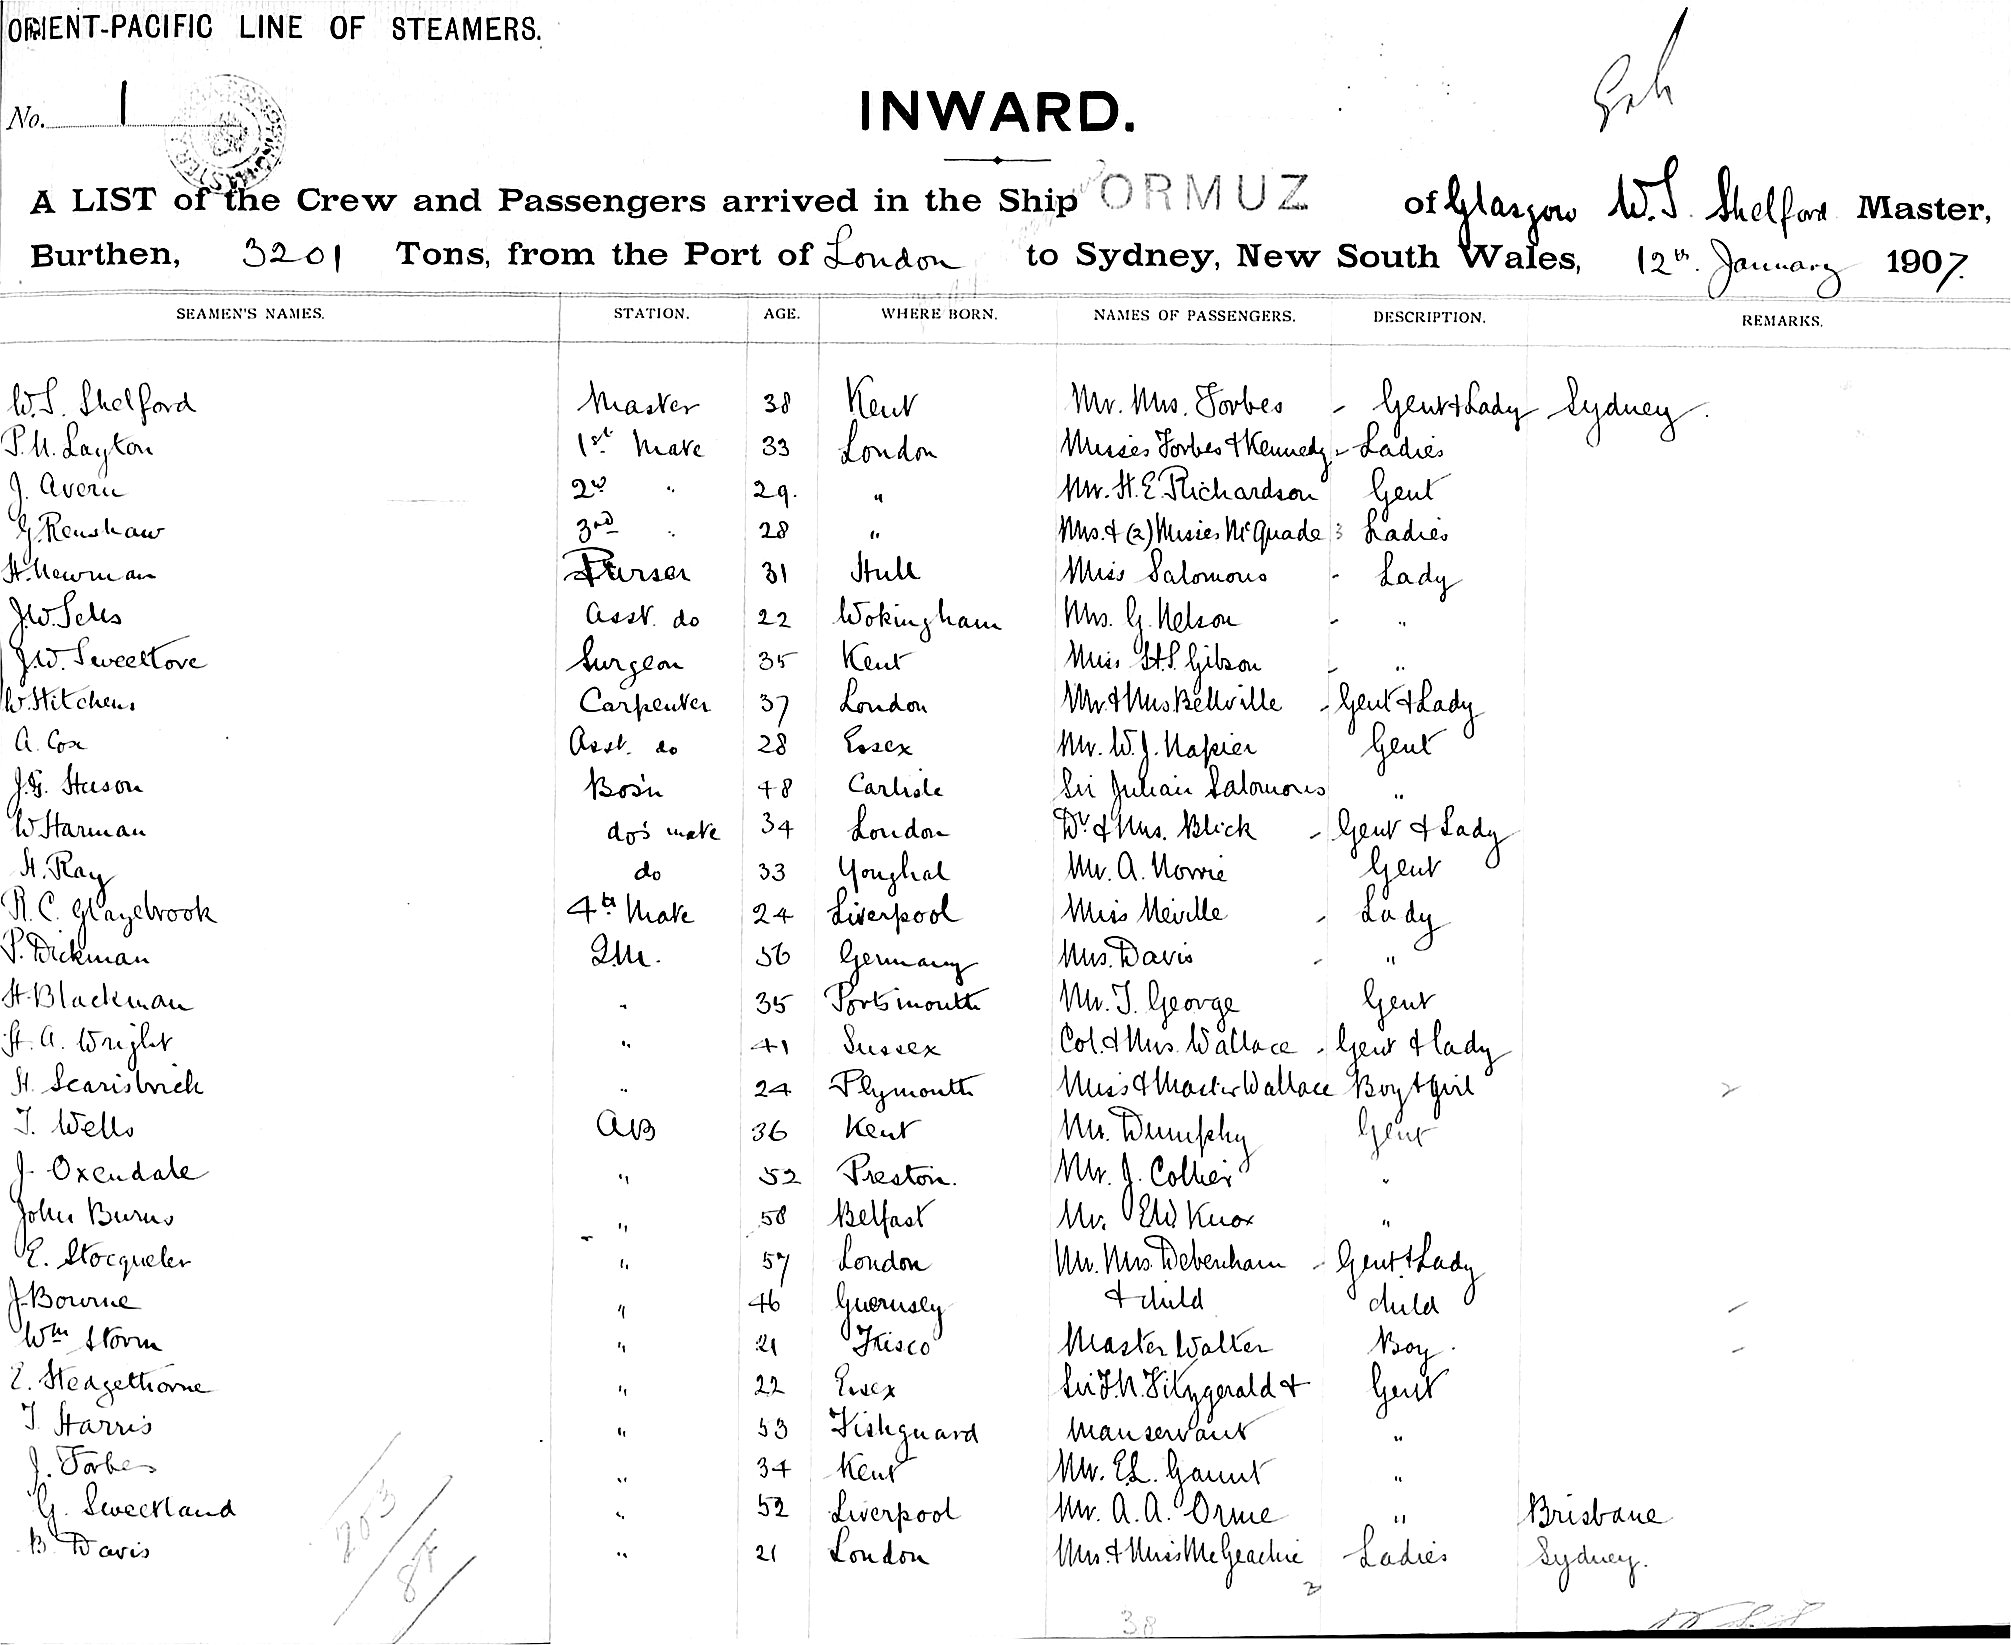 ORIENT-PACIFIC LINE OF STEAMERS.
No. 1
INWARD.
A LIST of the Crew and Passengers arrived in the Ship ORMUZ of Glasgow W.S. Shelford Master,
Burthen, 3201 Tons, from the Port of London to Sydney, New South Wales, 12th January 1907.
SEAMEN'S NAMES. STATION. AGE. WHERE BORN. NAMES OF PASSENGERS. DESCRIPTION. REMARKS.
W.S. Shelford Master 38 Kent Mr. Mrs. Forbes - Gent & Lady Sydney.
P.N. Layton 1st Mate 33 London Misses Forbes & Kennedy - Ladies
J. Avern 2nd " 29. " Mr. H.E. Richardson Gent
G. Renshaw 3rd " 28 " Mrs. & (2) Misses McQuade 3 Ladies
H. Newman Purser 31 Hull Miss Salomons - Lady
J.W. Sells Asst. do 22 Wokingham Mrs. G. Nelson - "
J.W. Sweetlove Surgeon 35 Kent Miss H.S. Gibson - "
W. Hitchens Carpenter 37 London Mr. & Mrs Bellville - Gent & Lady
A. Cox Asst. do 28 Essex Mr. W.J. Napier Gent
J.G. Heson Bo's'n 48 Carlisle Sir Julian Salomons "
W Harman do's mate 34 London Dr. & Mrs. Blick - Gent & Lady
H. Ray do 33 Yonghal Mr. A. Norrie Gent
R.C. Glazebrook 4th Mate 24 Liverpool Miss Neville - Lady
P. Dickman Q.M. 56 Germany Mrs. Davis - "
H. Blackman " 35 Portsmouth Mr. T. George Gent
H. A. Wright " 41 Sussex Col. & Mrs. Wallace - Gent & lady
H. Scarisbrick " 24 Plymouth Miss & Master Wallace Boy & girl 2
T. Wells AB 36 Kent Mr. Dumphy Gent
J. Oxendale " 52 Preston. Mr. J. Collier "
John Burns " 58 Belfast Mr. EW Knox "
E. Stocqueler " 57 London Mr. Mrs. Debenham - Gent & Lady
J. Bourne " 46 Guernsey & child child
Wm Storm " 21 Frisco Master Walter Boy.
E. Hedgethorne " 22 Essex Sir T.N. Fitzgerald & Gent
T. Harris " 53 Fishguard manservant "
J. Forbes " 34 Kent Mr. E.L. Gaunt "
G. Sweetland " 52 Liverpool Mr. A.A. Orme " Brisbane
B. Davis " 21 London Mrs. & Miss McGeachie Ladies Sydney.
203
84
2
38